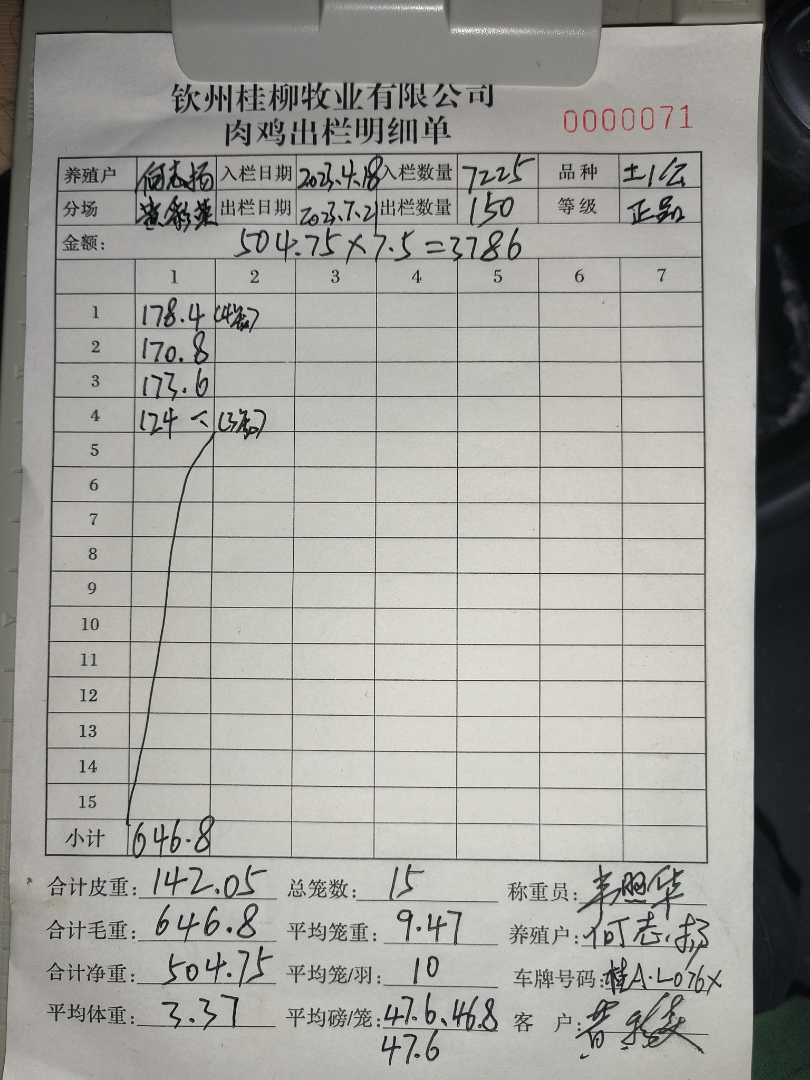 钦州桂柳牧业有限公司
肉鸡出栏明细单 0000071
养殖户 何志扬 入栏日期 2023.4.18 入栏数量 7225 品种 土1公
分场 出栏日期 2023.7.21 出栏数量 150 等级 正品
金额: 504.75×7.5=3786
1 2 3 4 5 6 7
1 178.4 (4笼)
2 170.8
3 173.6
4 124 (3笼)
5
6
7
8
9
10
11
12
13
14
15
小计 646.8
合计皮重: 142.05 总笼数: 15 称重员: 韦照华
合计毛重: 646.8 平均笼重: 9.47 养殖户: 何志扬
合计净重: 504.75 平均笼/羽: 10 车牌号码: 桂A·L076X
平均体重: 3.37 平均磅/笼: 47.6、46.8 客 户:
47.6